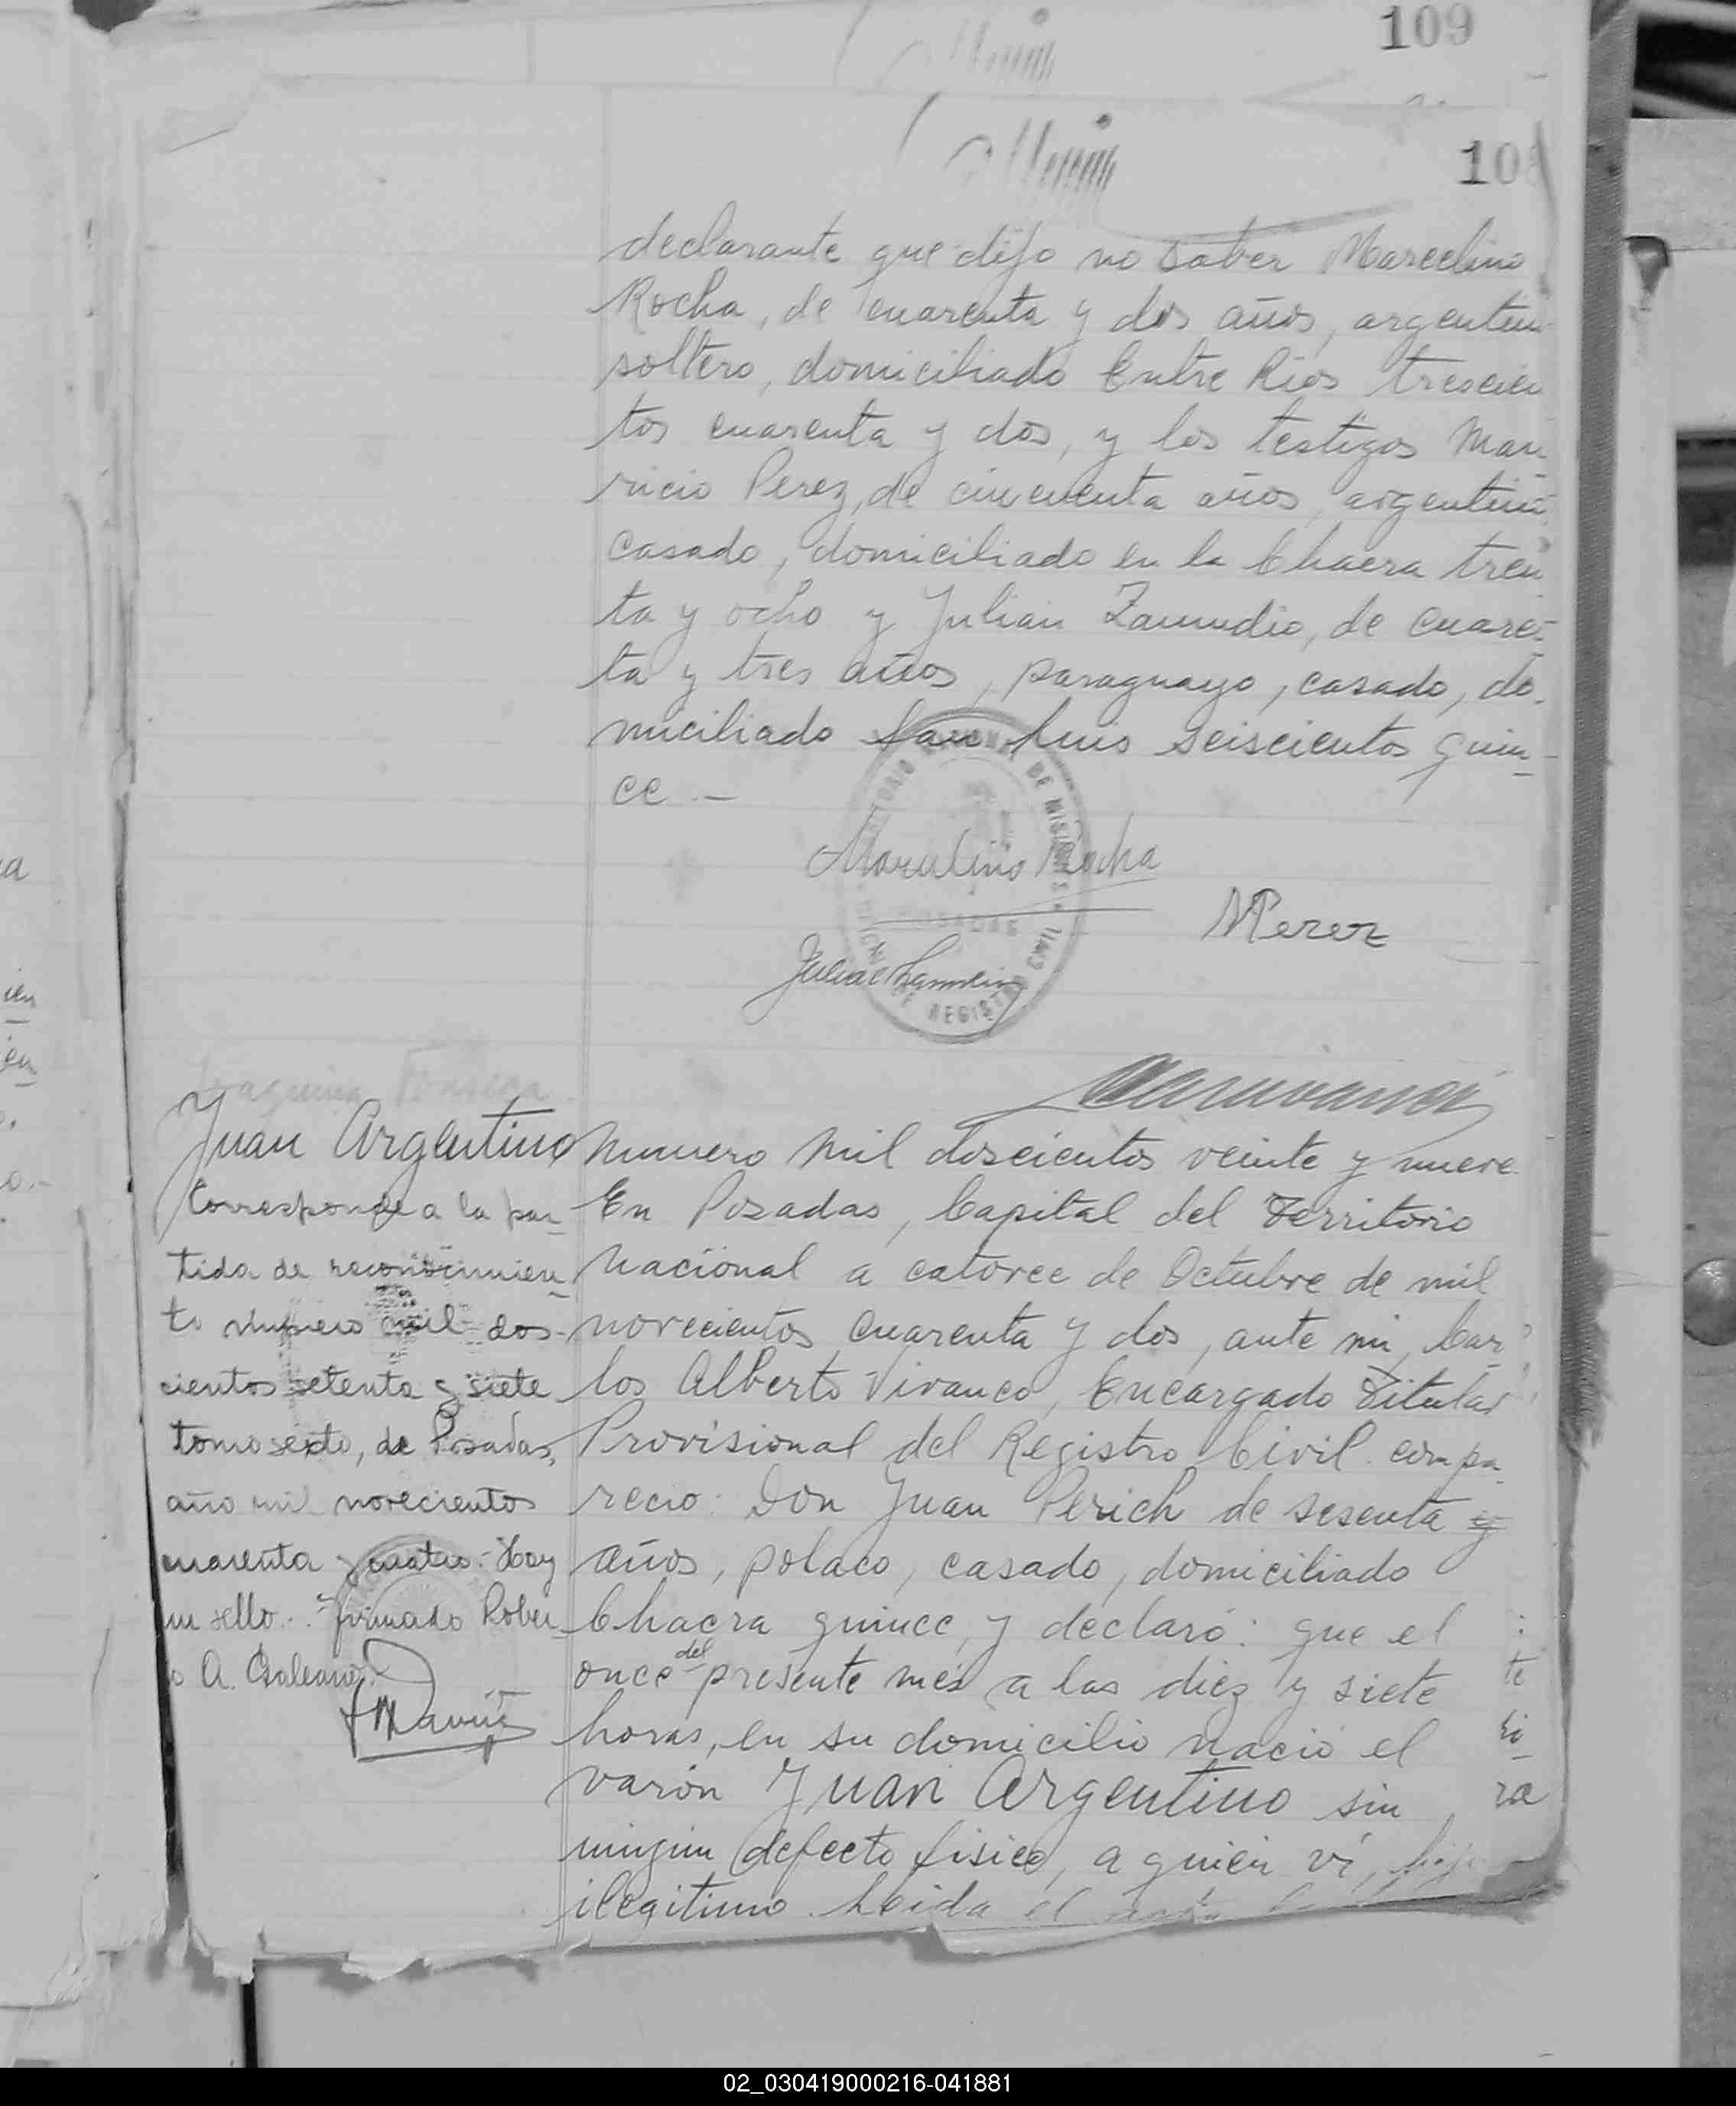 109
108
declarante que dijo no saber Marcelino
Rocha, de cuarenta y dos años, argentino
soltero, domiciliado Entre Rios trescien
tos cuarenta y dos, y los testigos Mau-
ricio Perez, de cincuenta años, argentino,
casado, domiciliado en la Chacra trein
ta y ocho y Julian Zamudio, de cuaren-
ta y tres años, paraguayo, casado, do-
miciliado San Luis seiscientos quin-
ce.-
Marcelino Rocha
MPerez
DE MISIONES
POSADAS
REGISTRO CIVIL
Juan Argentino
Corresponde a la par-
tida de reconocimien-
to número mil dos-
cientos setenta y siete
tomo sexto, de Posadas,
año mil novecientos
cuarenta y cuatro.- Hay
un sello.- firmado Rober-
o A. Galeano.
Numero mil doscientos veinte y nueve
En Posadas, Capital del Territorio
Nacional a catorce de Octubre de mil
novecientos cuarenta y dos, ante mi, Car-
los Alberto Vivanco, Encargado Titular
Provisional del Registro Civil compa-
recio: Don Juan Perich de sesenta y
años, polaco, casado, domiciliado
Chacra quince, y declaró: que el
once del presente mes a las diez y siete
horas, en su domicilio nació el
varón Juan Argentino sin
ningun defecto fisico, a quien ví, hijo
ilegitimo. Leida el acta
02_030419000216-041881